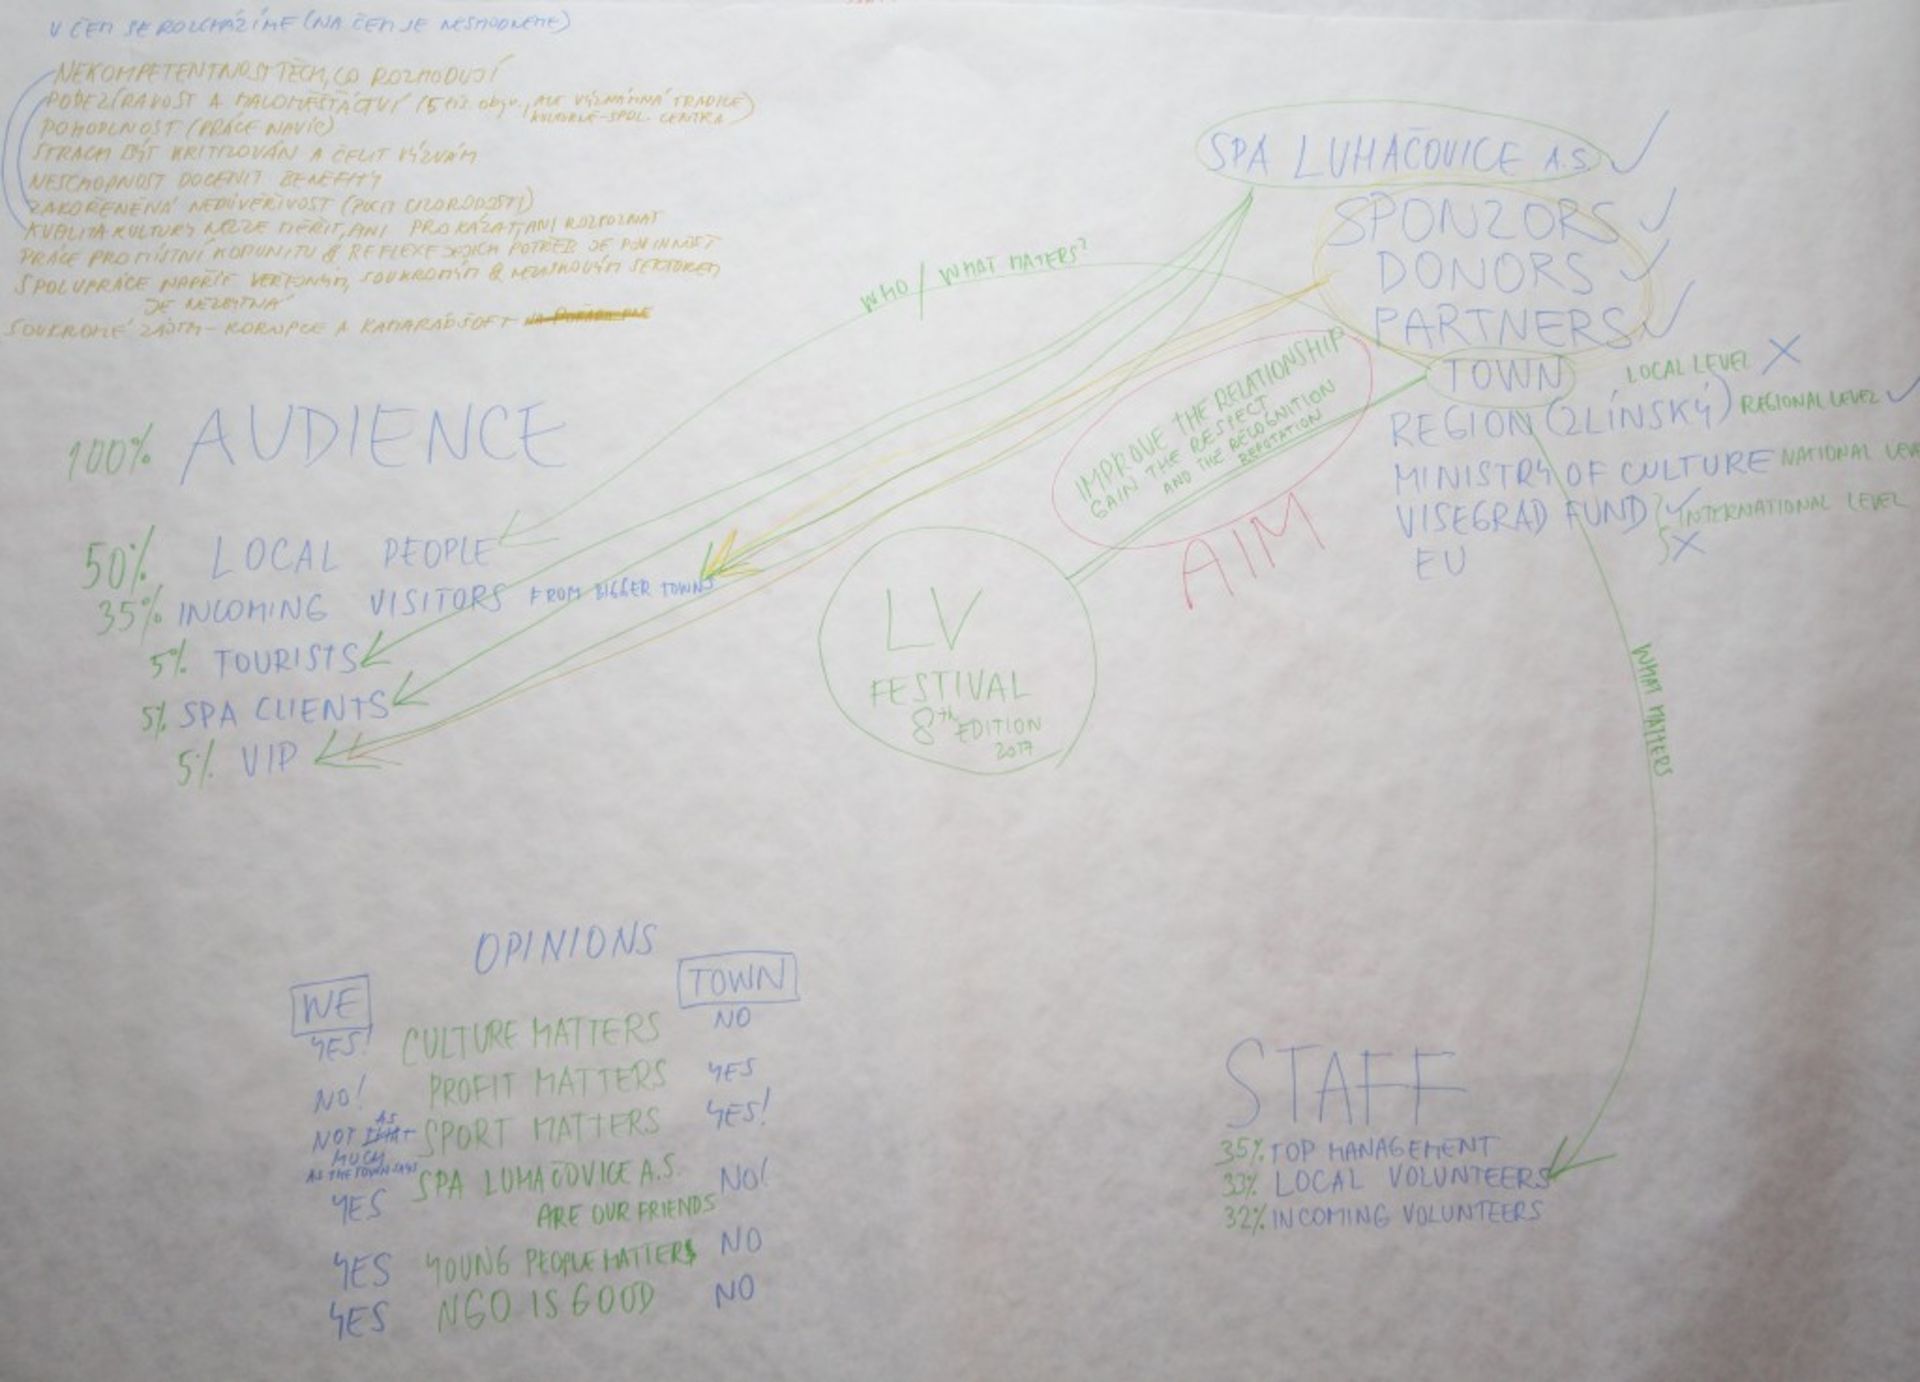 V ČEM SE ROZCHÁZÍME (NA ČEM SE NESHODNEME)
NEKOMPETENTNOST TĚCH, CO ROZHODUJÍ
PODEZÍRAVOST A MALOMĚŠŤÁCTVÍ (5 tis. obyv., ALE VÝZNAMNÁ TRADICE)
KULTURNĚ-SPOL. CENTRA
POHODLNOST (PRÁCE NAVÍC)
STRACH BÝT KRITIZOVÁN A ČELIT VÝZVÁM
NESCHOPNOST DOCENIT BENEFITY
ZAKOŘENĚNÁ NEDŮVĚŘIVOST (POCIT CIZORODOSTI)
KVALITA KULTURY NELZE MĚŘIT, ANI PROKÁZAT, ANI ROZPOZNAT
PRÁCE PRO MÍSTNÍ KOMUNITU & REFLEXE JEJICH POTŘEB JE POVINNOST
SPOLUPRÁCE NAPŘÍČ VEŘEJNÝM, SOUKROMÝM & NEZISKOVÝM SEKTOREM
JE NEZBYTNÁ
SOUKROMÉ ZÁJMY - KORUPCE A KAMARÁDŠOFT
SPA LUHAČOVICE A.S. ✓
SPONZORS ✓
DONORS ✓
PARTNERS ✓
TOWN LOCAL LEVEL X
REGION (ZLÍNSKÝ) REGIONAL LEVEL ✓
MINISTRY OF CULTURE NATIONAL LEVE
VISEGRAD FUND ? ✓ INTERNATIONAL LEVEL
EU X
WHO / WHAT MATERS?
IMPROVE THE RELATIONSHIP
GAIN THE RESPECT
AND THE RECOGNITION
REPUTATION
AIM
100% AUDIENCE
50% LOCAL PEOPLE
35% INCOMING VISITORS FROM BIGGER TOWNS
5% TOURISTS
5% SPA CLIENTS
5% VIP
LV
FESTIVAL
8th EDITION
2017
WHAT MATTERS
OPINIONS
WE TOWN
YES! CULTURE MATTERS NO
NO! PROFIT MATTERS YES
NOT THAT AS MUCH AS THE TOWN SAYS SPORT MATTERS YES!
YES SPA LUHAČOVICE A.S. NO!
ARE OUR FRIENDS
YES YOUNG PEOPLE MATTERS NO
YES NGO IS GOOD NO
STAFF
35% TOP MANAGEMENT
33% LOCAL VOLUNTEERS
32% INCOMING VOLUNTEERS